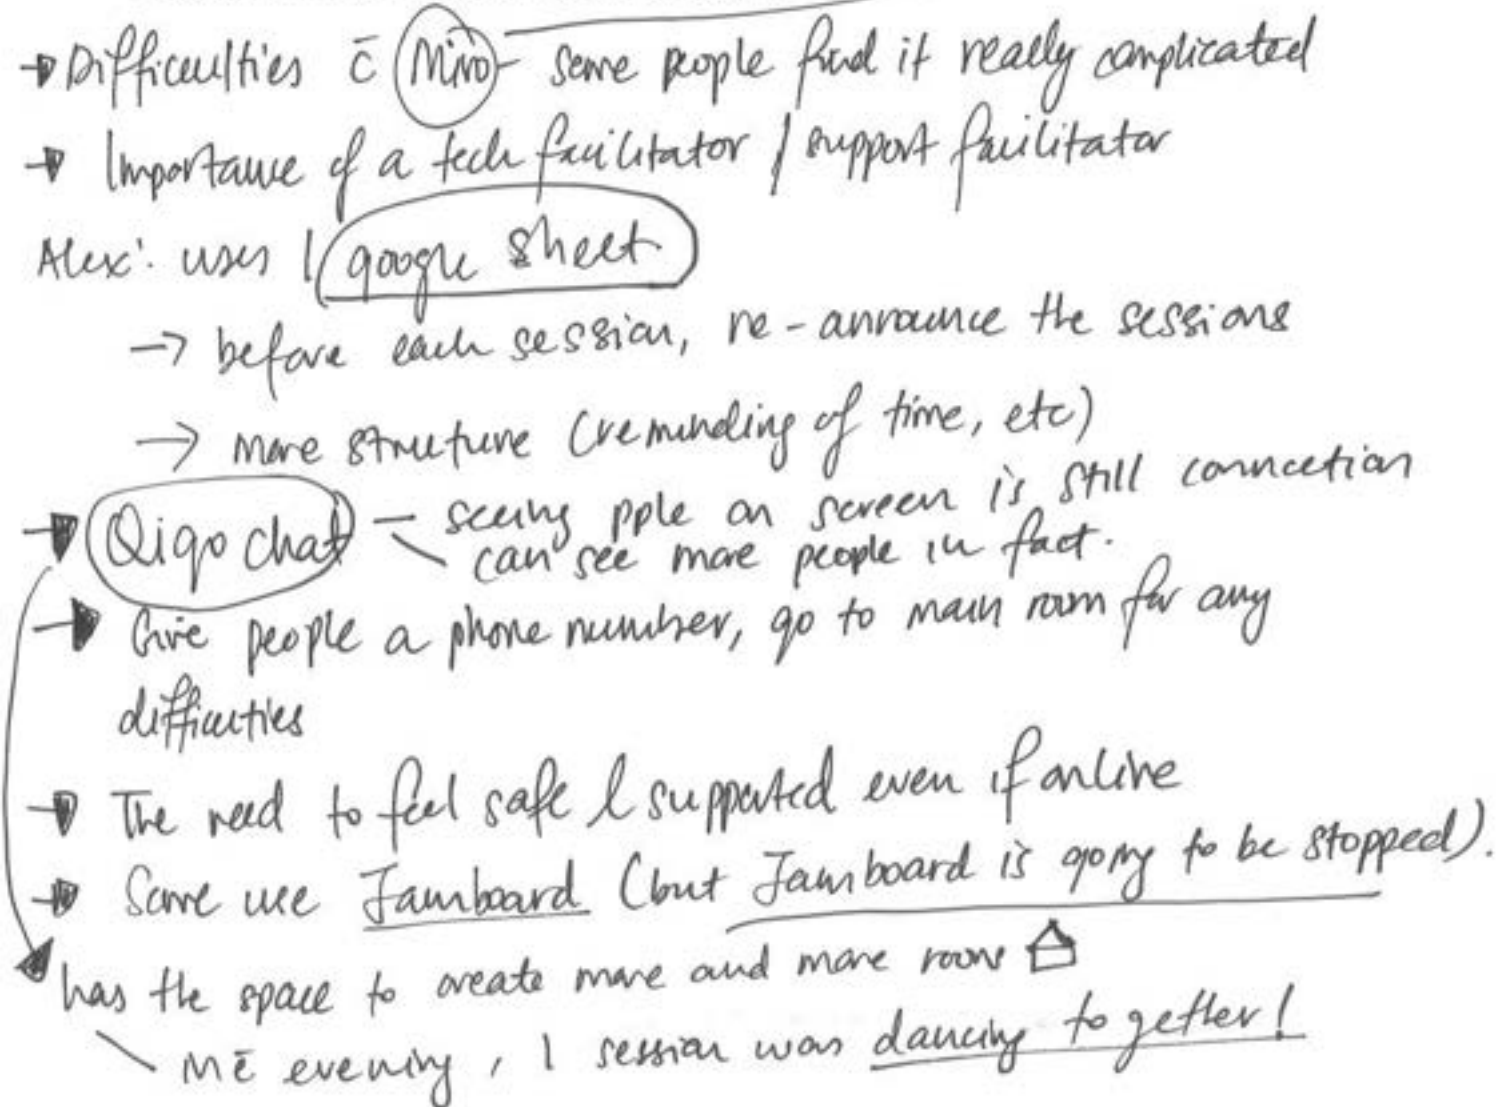 Difficulties c̄ Miro - some people find it really complicated
Importance of a tech facilitator / support facilitator
Alex: uses 1 google sheet
→ before each session, re-announce the sessions
→ more structure (reminding of time, etc)
Qiqo chat — seeing pple on screen is still connection
can see more people in fact.
Give people a phone number, go to main room for any
difficulties
The need to feel safe & supported even if online
Some use Jamboard (but Jamboard is going to be stopped).
has the space to create more and more rooms
evening, 1 session was dancing together!